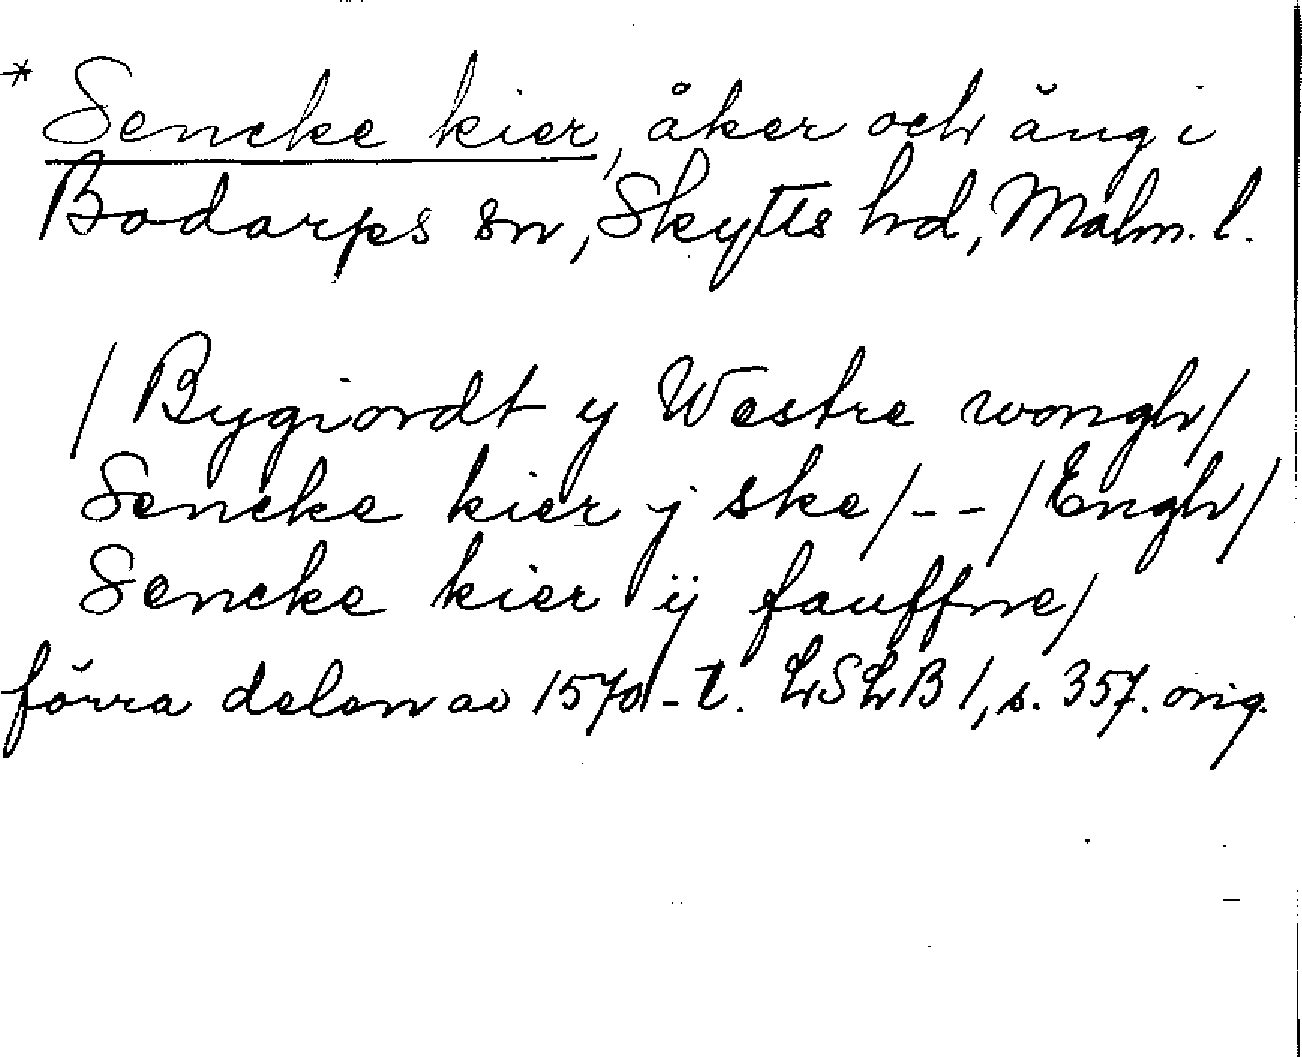 * Sencke kier, åker och äng i
Bodarps sn, Skytts hd, Malm. l.
/ Bygiordt y Westre wongh/
Sencke kier j ske/ - - /Engh/
Sencke kier ij fauffne/
förra delen av 1570-t. LSLB 1, s. 357. orig.